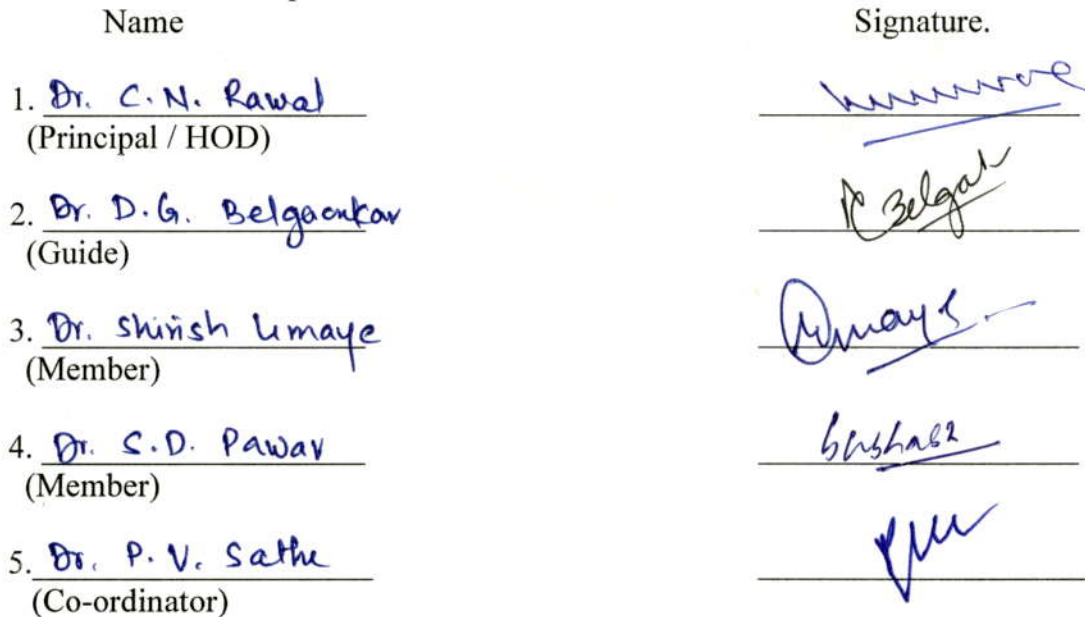 Name Signature.
1. Dr. C.N. Rawal
(Principal / HOD)
2. Dr. D.G. Belgaonkar
(Guide)
3. Dr. Shirish Umaye
(Member)
4. Dr. S.D. Pawar
(Member)
5. Dr. P.V. Sathe
(Co-ordinator)